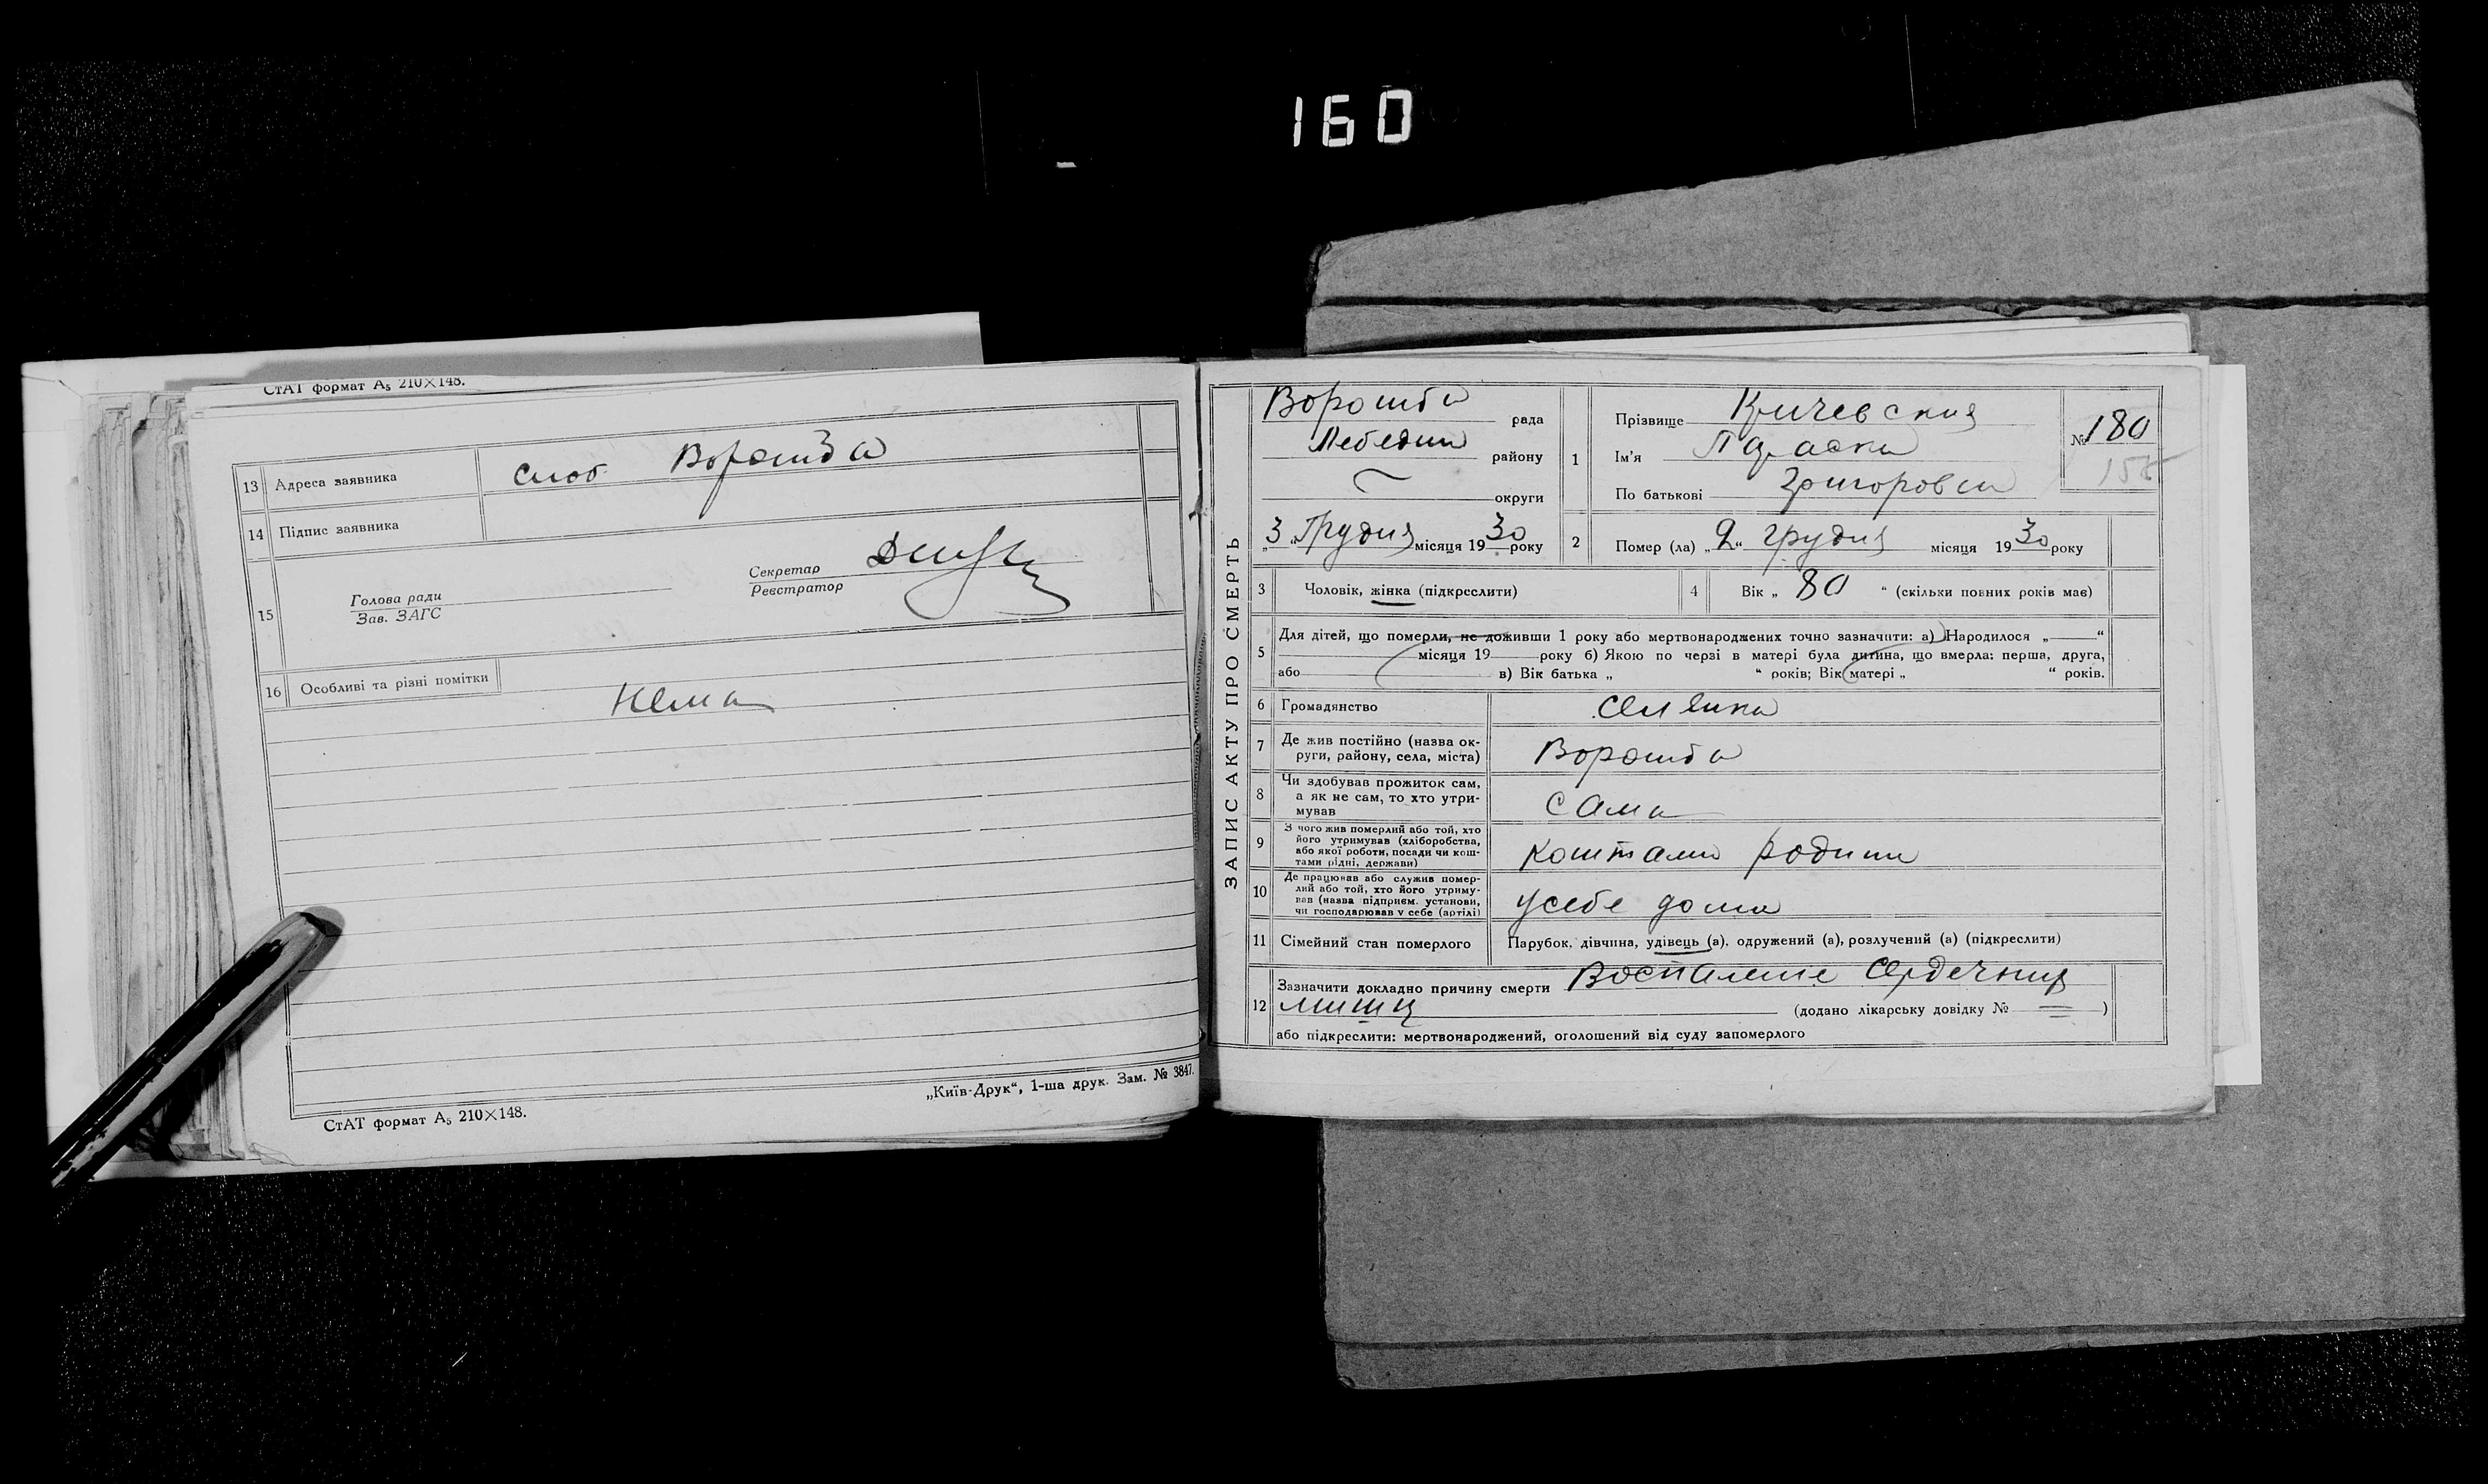 160
СтАТ формат А₅ 210×148.
13 Адреса заявника слоб Ворожба
14 Підпис заявника
15 Голова ради
Зав. ЗАГС
Секретар
Реєстратор
16 Особливі та різні помітки
Нема
„Київ-Друк“, 1-ша друк. Зам. № 3847.
СтАТ формат А₅ 210×148.
ЗАПИС АКТУ ПРО СМЕРТЬ
Ворожба рада
Лебедин району
округи
„3“ Грудня місяця 1930 року
1 Прізвище Кричевська
Ім'я Параска
По батькові Григоровна
№ 180
155
2 Помер (ла) „2“ грудня місяця 1930 року
3 Чоловік, жінка (підкреслити)
4 Вік „ 80 “ (скільки повних років має)
5 Для дітей, що померли, не доживши 1 року або мертвонароджених точно зазначити: а) Народилося „ “
місяця 19 року б) Якою по черзі в матері була дитина, що вмерла: перша, друга,
або в) Вік батька „ “ років; Вік матері „ “ років.
6 Громадянство Селянка
7 Де жив постійно (назва ок-
руги, району, села, міста) Ворожба
8 Чи здобував прожиток сам,
а як не сам, то хто утри-
мував Сама
9 З чого жив померлий або той, хто
його утримував (хліборобства,
або якої роботи, посади чи кош-
тами рідні, держави) Коштами родини
10 Де працював або служив помер-
лий або той, хто його утриму-
вав (назва підприєм. установи,
чи господарював у себе (артілі) усебе дома
11 Сімейний стан померлого Парубок, дівчина, удівець (а), одружений (а), розлучений (а) (підкреслити)
12 Зазначити докладно причину смерти Воспаление Сердечних
мишц (додано лікарську довідку № )
або підкреслити: мертвонароджений, оголошений від суду запомерлого